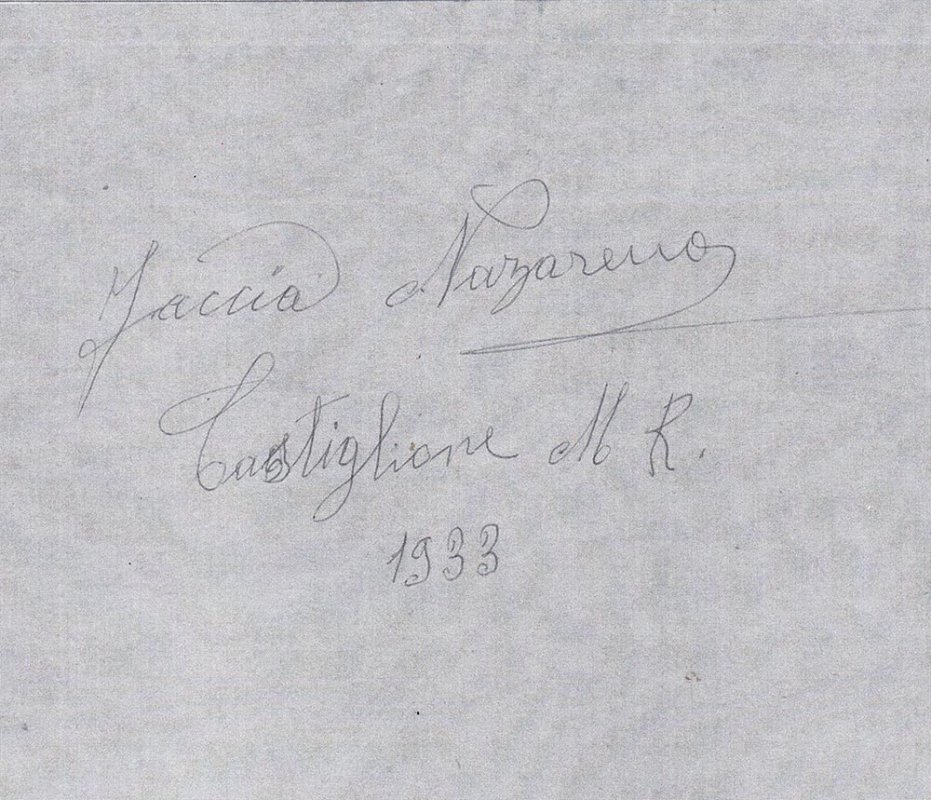 Jaccia Nazareno
Castiglione M R.
1933